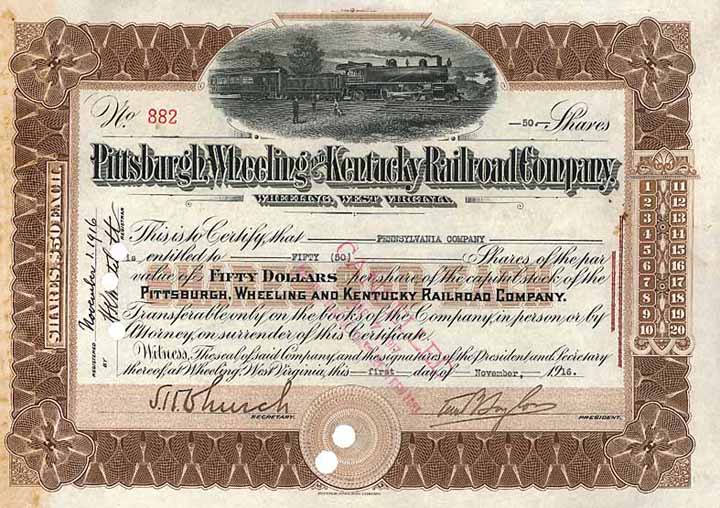 No. 882
—50— Shares
Pittsburgh, Wheeling and Kentucky Railroad Company,
WHEELING, WEST VIRGINIA.
This is to Certify, that PENNSYLVANIA COMPANY
is entitled to FIFTY (50) Shares of the par
value of FIFTY DOLLARS per share of the capital stock of the
PITTSBURGH, WHEELING AND KENTUCKY RAILROAD COMPANY.
Transferable only on the books of the Company, in person or by
Attorney, on surrender of this Certificate.
Witness, The seal of said Company, and the signatures of the President and Secretary
thereof, at Wheeling, West Virginia, this first day of November, 1916.
S.B. Church
SECRETARY.
PRESIDENT.
SHARES $50 EACH
REGISTERED November 1, 1916
BY
REGISTRAR
1 11
2 12
3 13
4 14
5 15
6 16
7 17
8 18
9 19
10 20